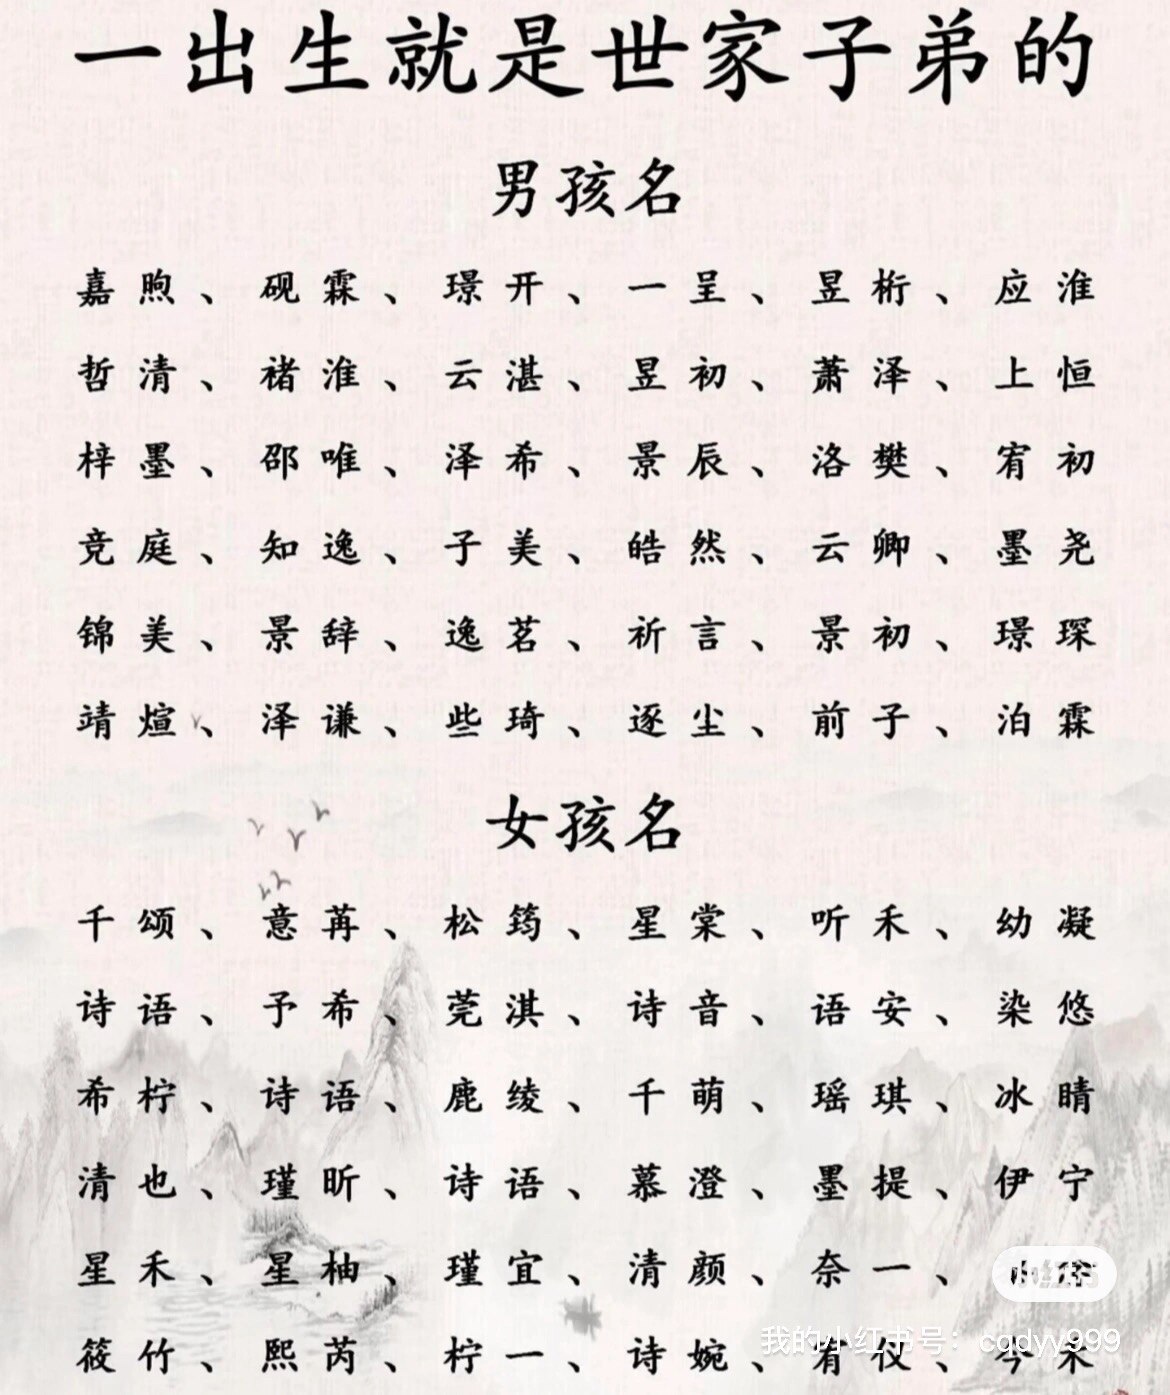 一出生就是世家子弟的
男孩名
嘉煦、砚霖、璟开、一呈、昱桁、应淮
哲清、褚淮、云湛、昱初、萧泽、上恒
梓墨、邵唯、泽希、景辰、洛樊、宥初
竞庭、知逸、子美、皓然、云卿、墨尧
锦美、景辞、逸茗、祈言、景初、璟琛
靖煊、泽谦、些琦、逐尘、前子、泊霖
女孩名
千颂、意苒、松筠、星棠、听禾、幼凝
诗语、予希、莞淇、诗音、语安、染悠
希柠、诗语、鹿绫、千萌、瑶琪、冰晴
清也、瑾昕、诗语、慕澄、墨提、伊宁
星禾、星柚、瑾宜、清颜、奈一、
筱竹、熙芮、柠一、诗婉、有仪、今禾
小红书
我的小红书号：cqdyy999